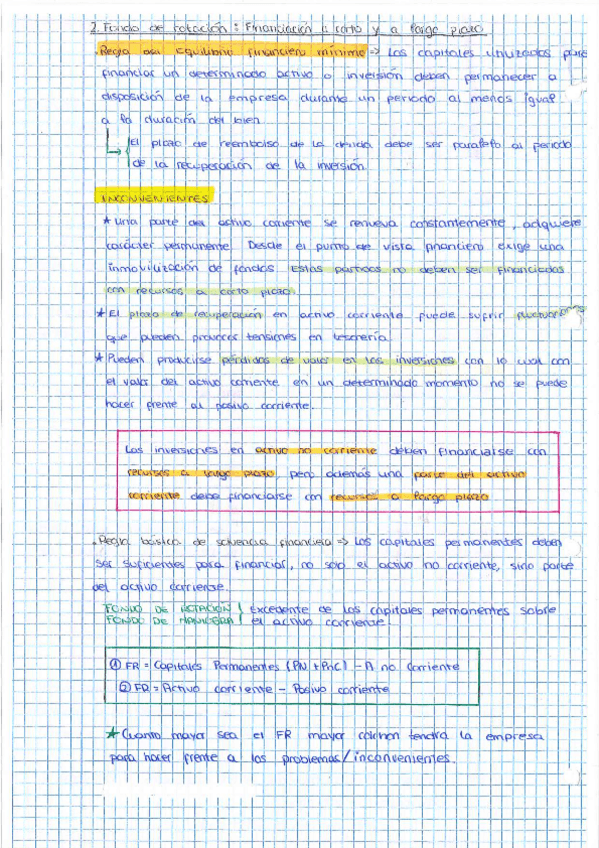 2. Fondo de rotación: Financiación a corto y a largo plazo.
· Regla del Equilibrio financiero mínimo => Los capitales utilizados para
financiar un determinado activo o inversión deben permanecer a
disposición de la empresa durante un periodo al menos igual
a la duración del bien
El plazo de reembolso de la deuda debe ser paralelo al periodo
de la recuperación de la inversión.
INCONVENIENTES
* una parte del activo corriente se renueva constantemente, adquiere
carácter permanente. Desde el punto de vista financiero exige una
inmovilización de fondos. Estas partidas no deben ser financiadas
con recursos a corto plazo.
* El plazo de recuperación en activo corriente puede sufrir fluctuaciones
que pueden provocar tensiones en tesorería.
* Pueden producirse pérdidas de valor en las inversiones con lo cual con
el valor del activo corriente en un determinado momento no se puede
hacer frente al pasivo corriente.
Las inversiones en activo no corriente deben financiarse con
recursos a largo plazo, pero además una parte del activo
corriente debe financiarse con recursos a largo plazo
· Regla básica de solvencia financiera => Los capitales permanentes deben
ser suficientes para financiar, no solo el activo no corriente, sino parte
del activo corriente.
FONDO DE ROTACIÓN } Excedente de los capitales permanentes sobre
FONDO DE MANIOBRA } el activo corriente.
① FR = Capitales Permanentes (PN + PNC) - A no corriente
② FR = Activo corriente - Pasivo corriente
* Cuanto mayor sea el FR mayor colchón tendrá la empresa
para hacer frente a los problemas/inconvenientes.